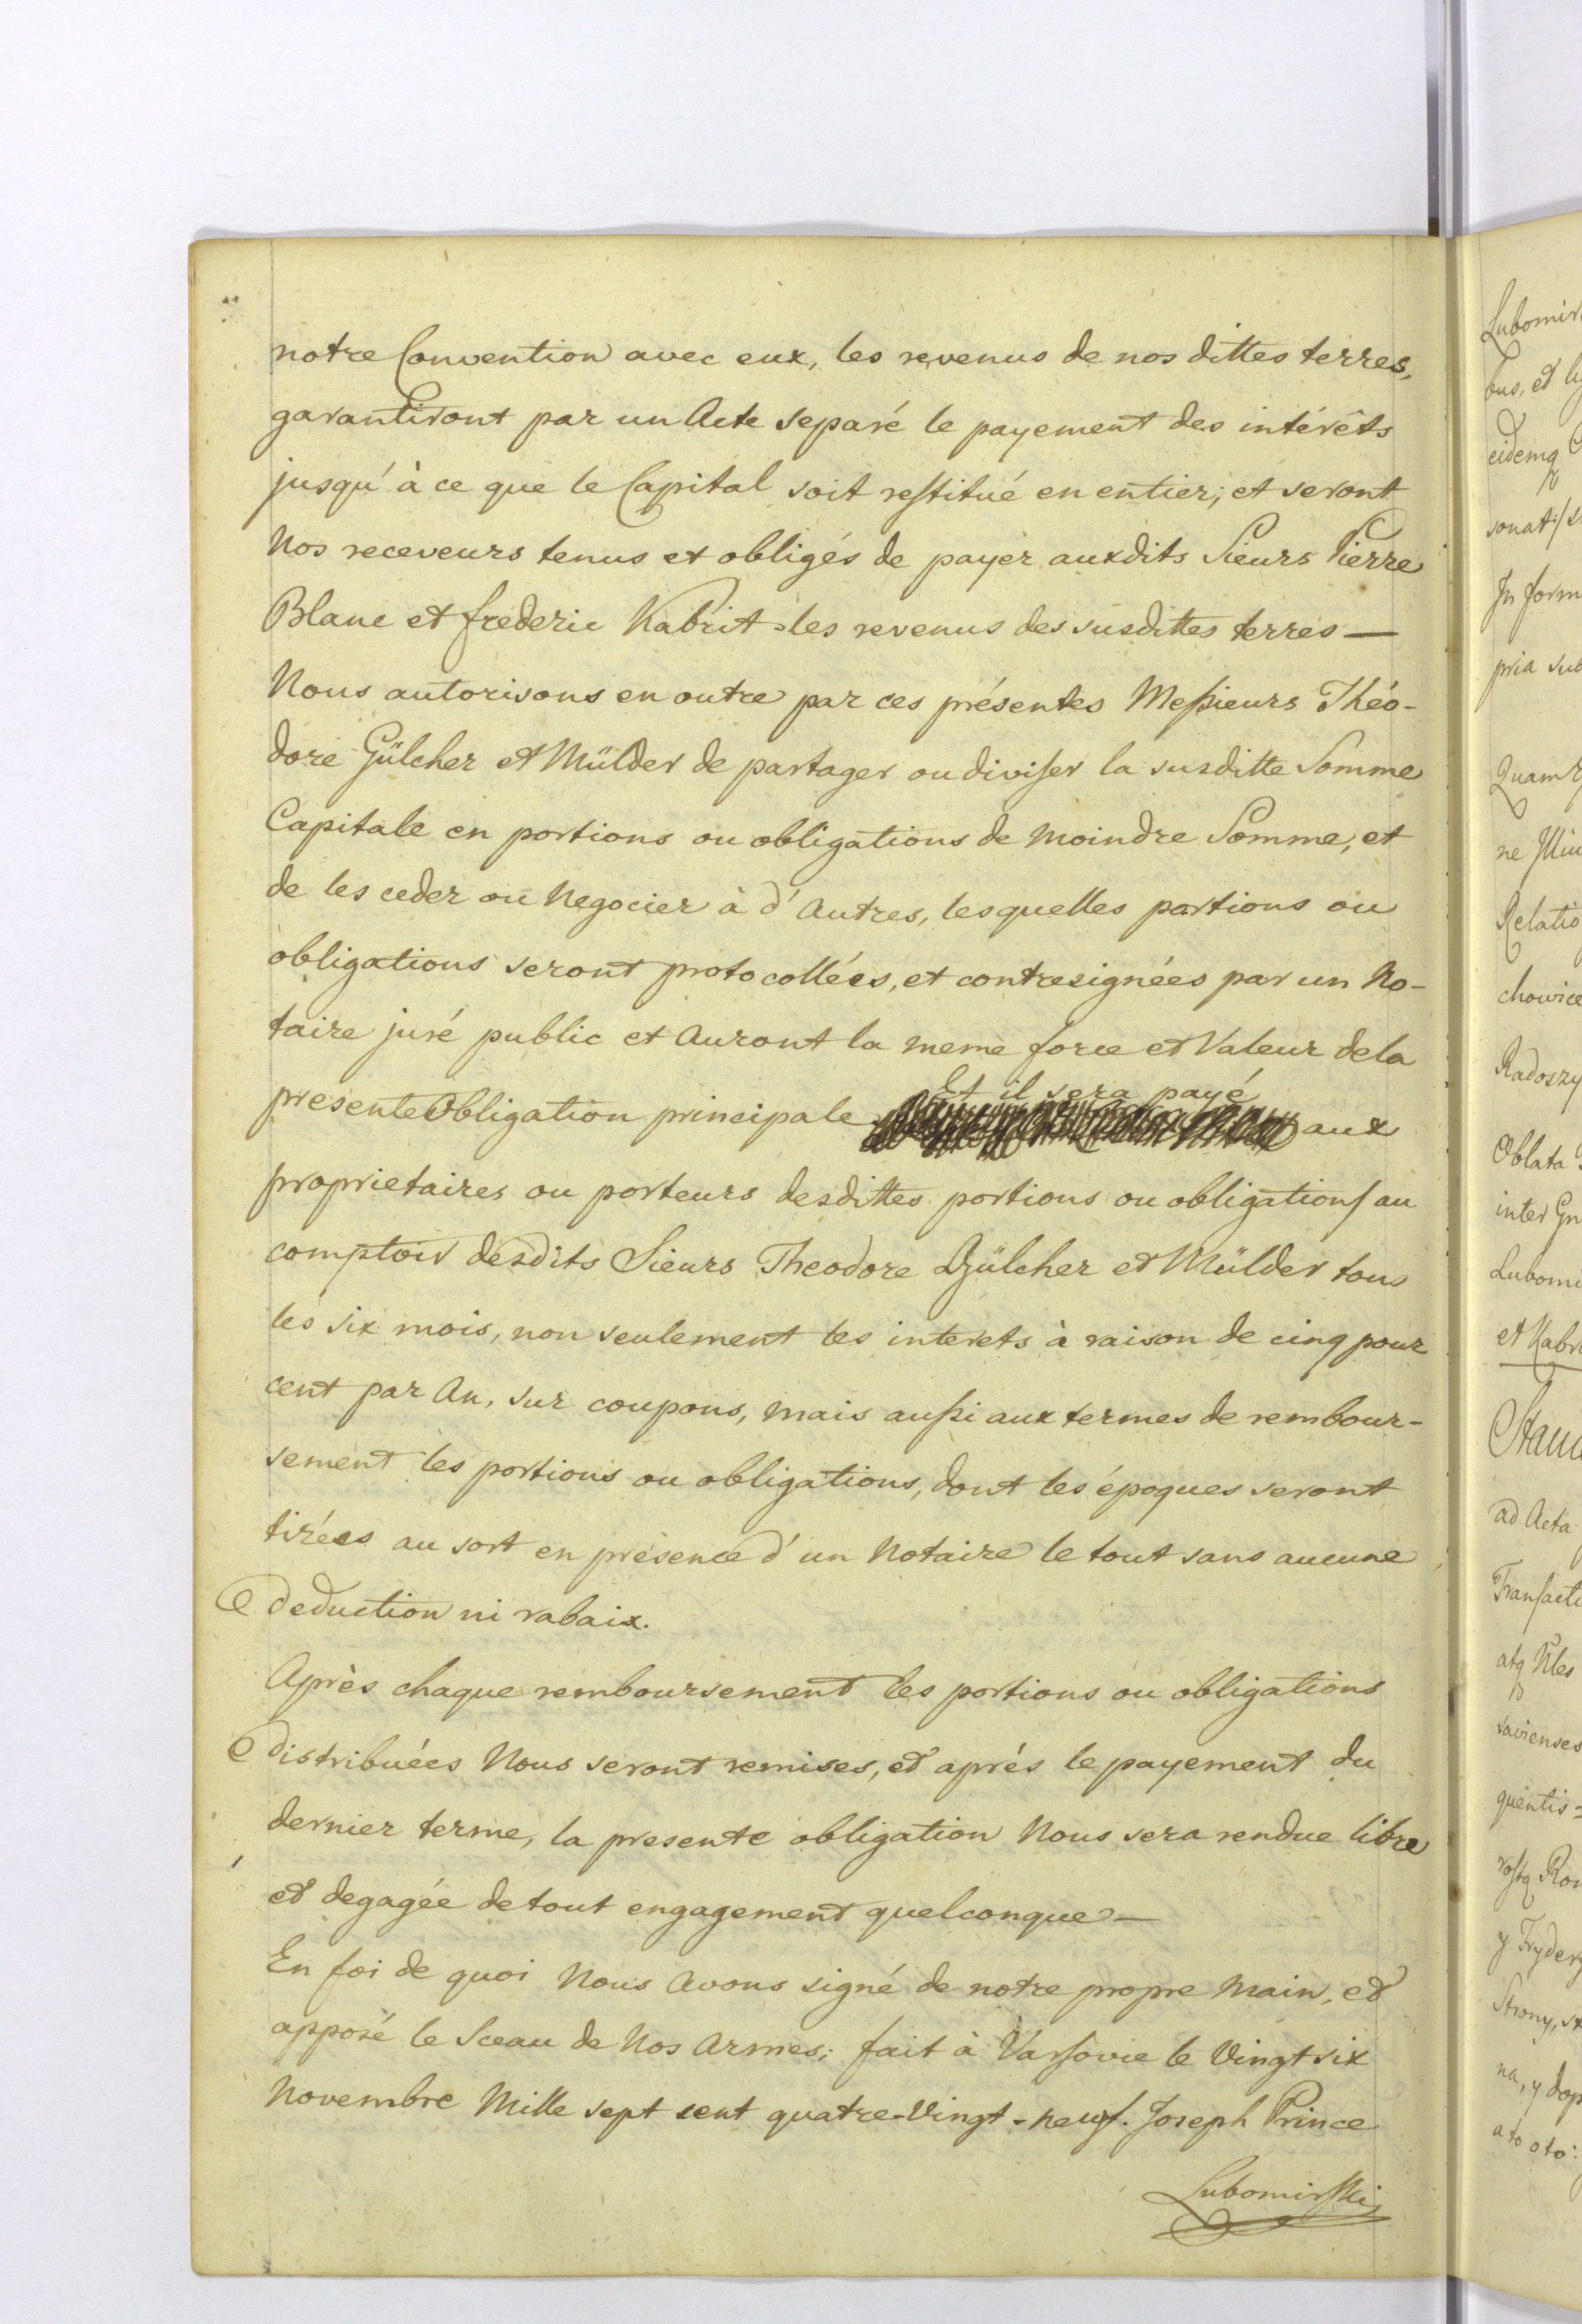 notre Convention avec eux, les revenus de nos dittes terres,
garantiront par un Acte separé le payement des intérêts
jusqu'à ce que le Capital soit restitué en entier; et seront
Nos receveurs tenus et obligés de payer auxdits Sieurs Pierre
Blanc et frederic Kabrit les revenus des susdittes terres —
Nous autorisons en outre par ces présentes Messieurs Théo-
dore Gülcher et Mülder de partager ou diviser la susditte Somme
Capitale en portions ou obligations de moindre Somme, et
de les ceder ou Negocier à d'Autres, lesquelles portions ou
obligations seront protocollées, et contresignées par un No-
taire juré public et Auront la meme force et Valeur de la
Et il sera payé
presente Obligation principale aux
proprietaires ou porteurs desdittes portions ou obligations au
comptoir desdits Sieurs Theodore Gülcher et Mülder tous
les six mois, non seulement les interets à raison de cinq pour
cent par An, sur coupons, mais aussi aux termes de rembour-
sement les portions ou obligations, dont les époques seront
tirées au sort en présence d'un Notaire le tout sans aucune
deduction ni rabaix.
Après chaque remboursement les portions ou obligations
distribuées Nous seront remises, et aprés le payement du
dernier terme, la presente obligation Nous sera rendue libre
et degagée de tout engagement quelconque —
En foi de quoi Nous Avons signé de notre propre Main, et
apposé le Sceau de Nos Armes; fait à Varsovie le Vingt six
Novembre Mille sept cent quatre-Vingt-neuf. Joseph Prince
Lubomirski
Lubomir
bus, et
eidemq
In form
pria sub
Relatio
chowice
Radoszy
Oblata
inter Gn
Lubomi
et Kabri
Stani
ad Acta
Transacti
savienses
quentis=
y Fryder
Strony,
na, y dop
ato oto: